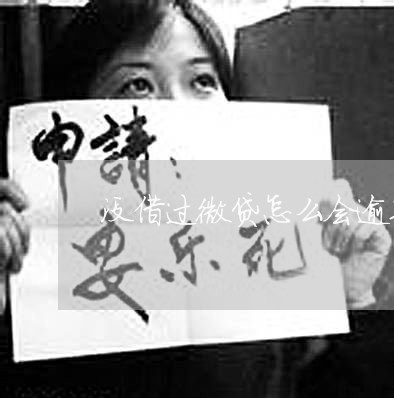 申請：
没借过微贷怎么会逾
安乐死